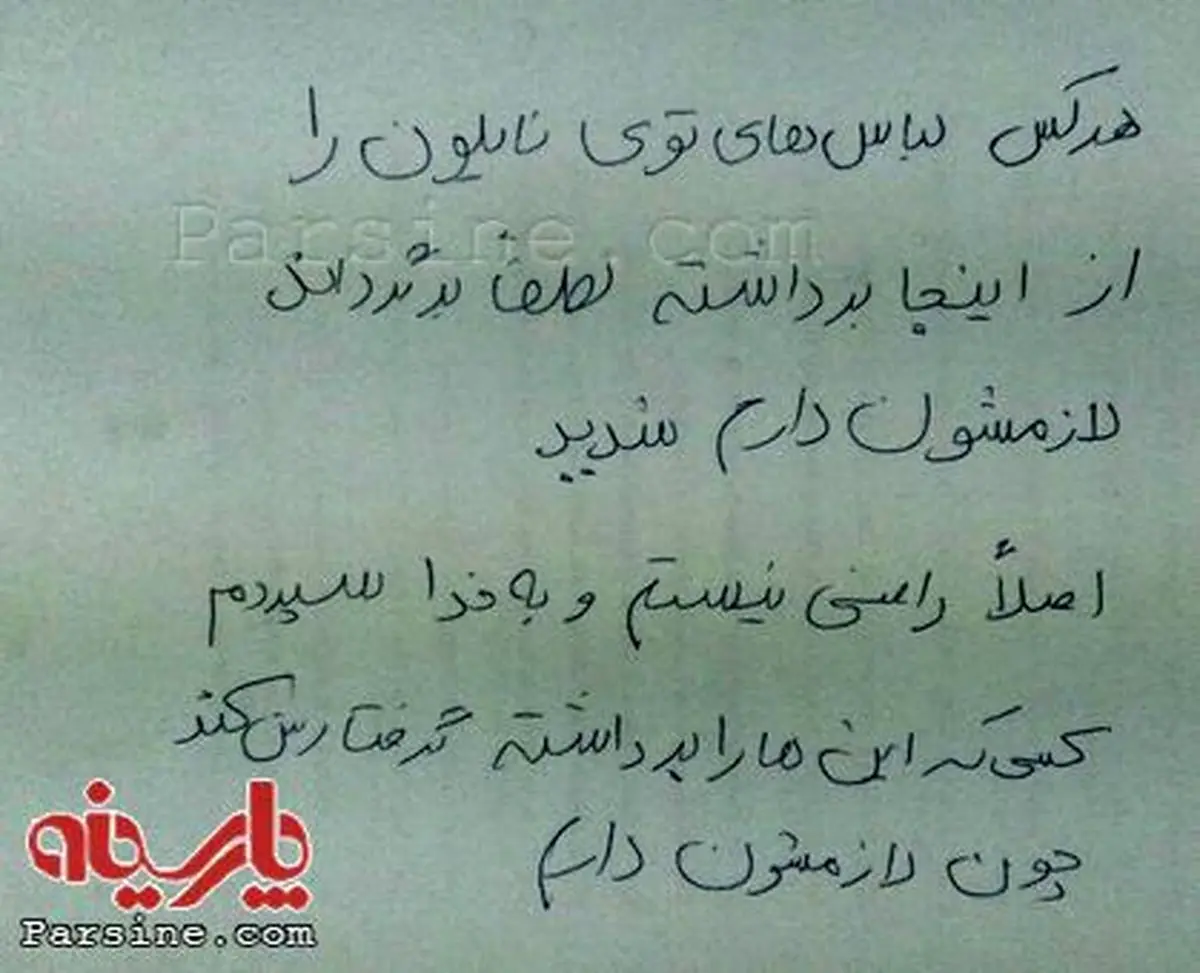 هرکس لباس‌های توی نایلون را
Parsine.com
از اینجا برداشته لطفاً برگرداند
لازمشون دارم شدید
اصلاً راضی نیستم و به خدا سپردم
کسی که این ها را برداشته گرفتارش کند
چون لازمشون دارم
پارسینه
Parsine.com